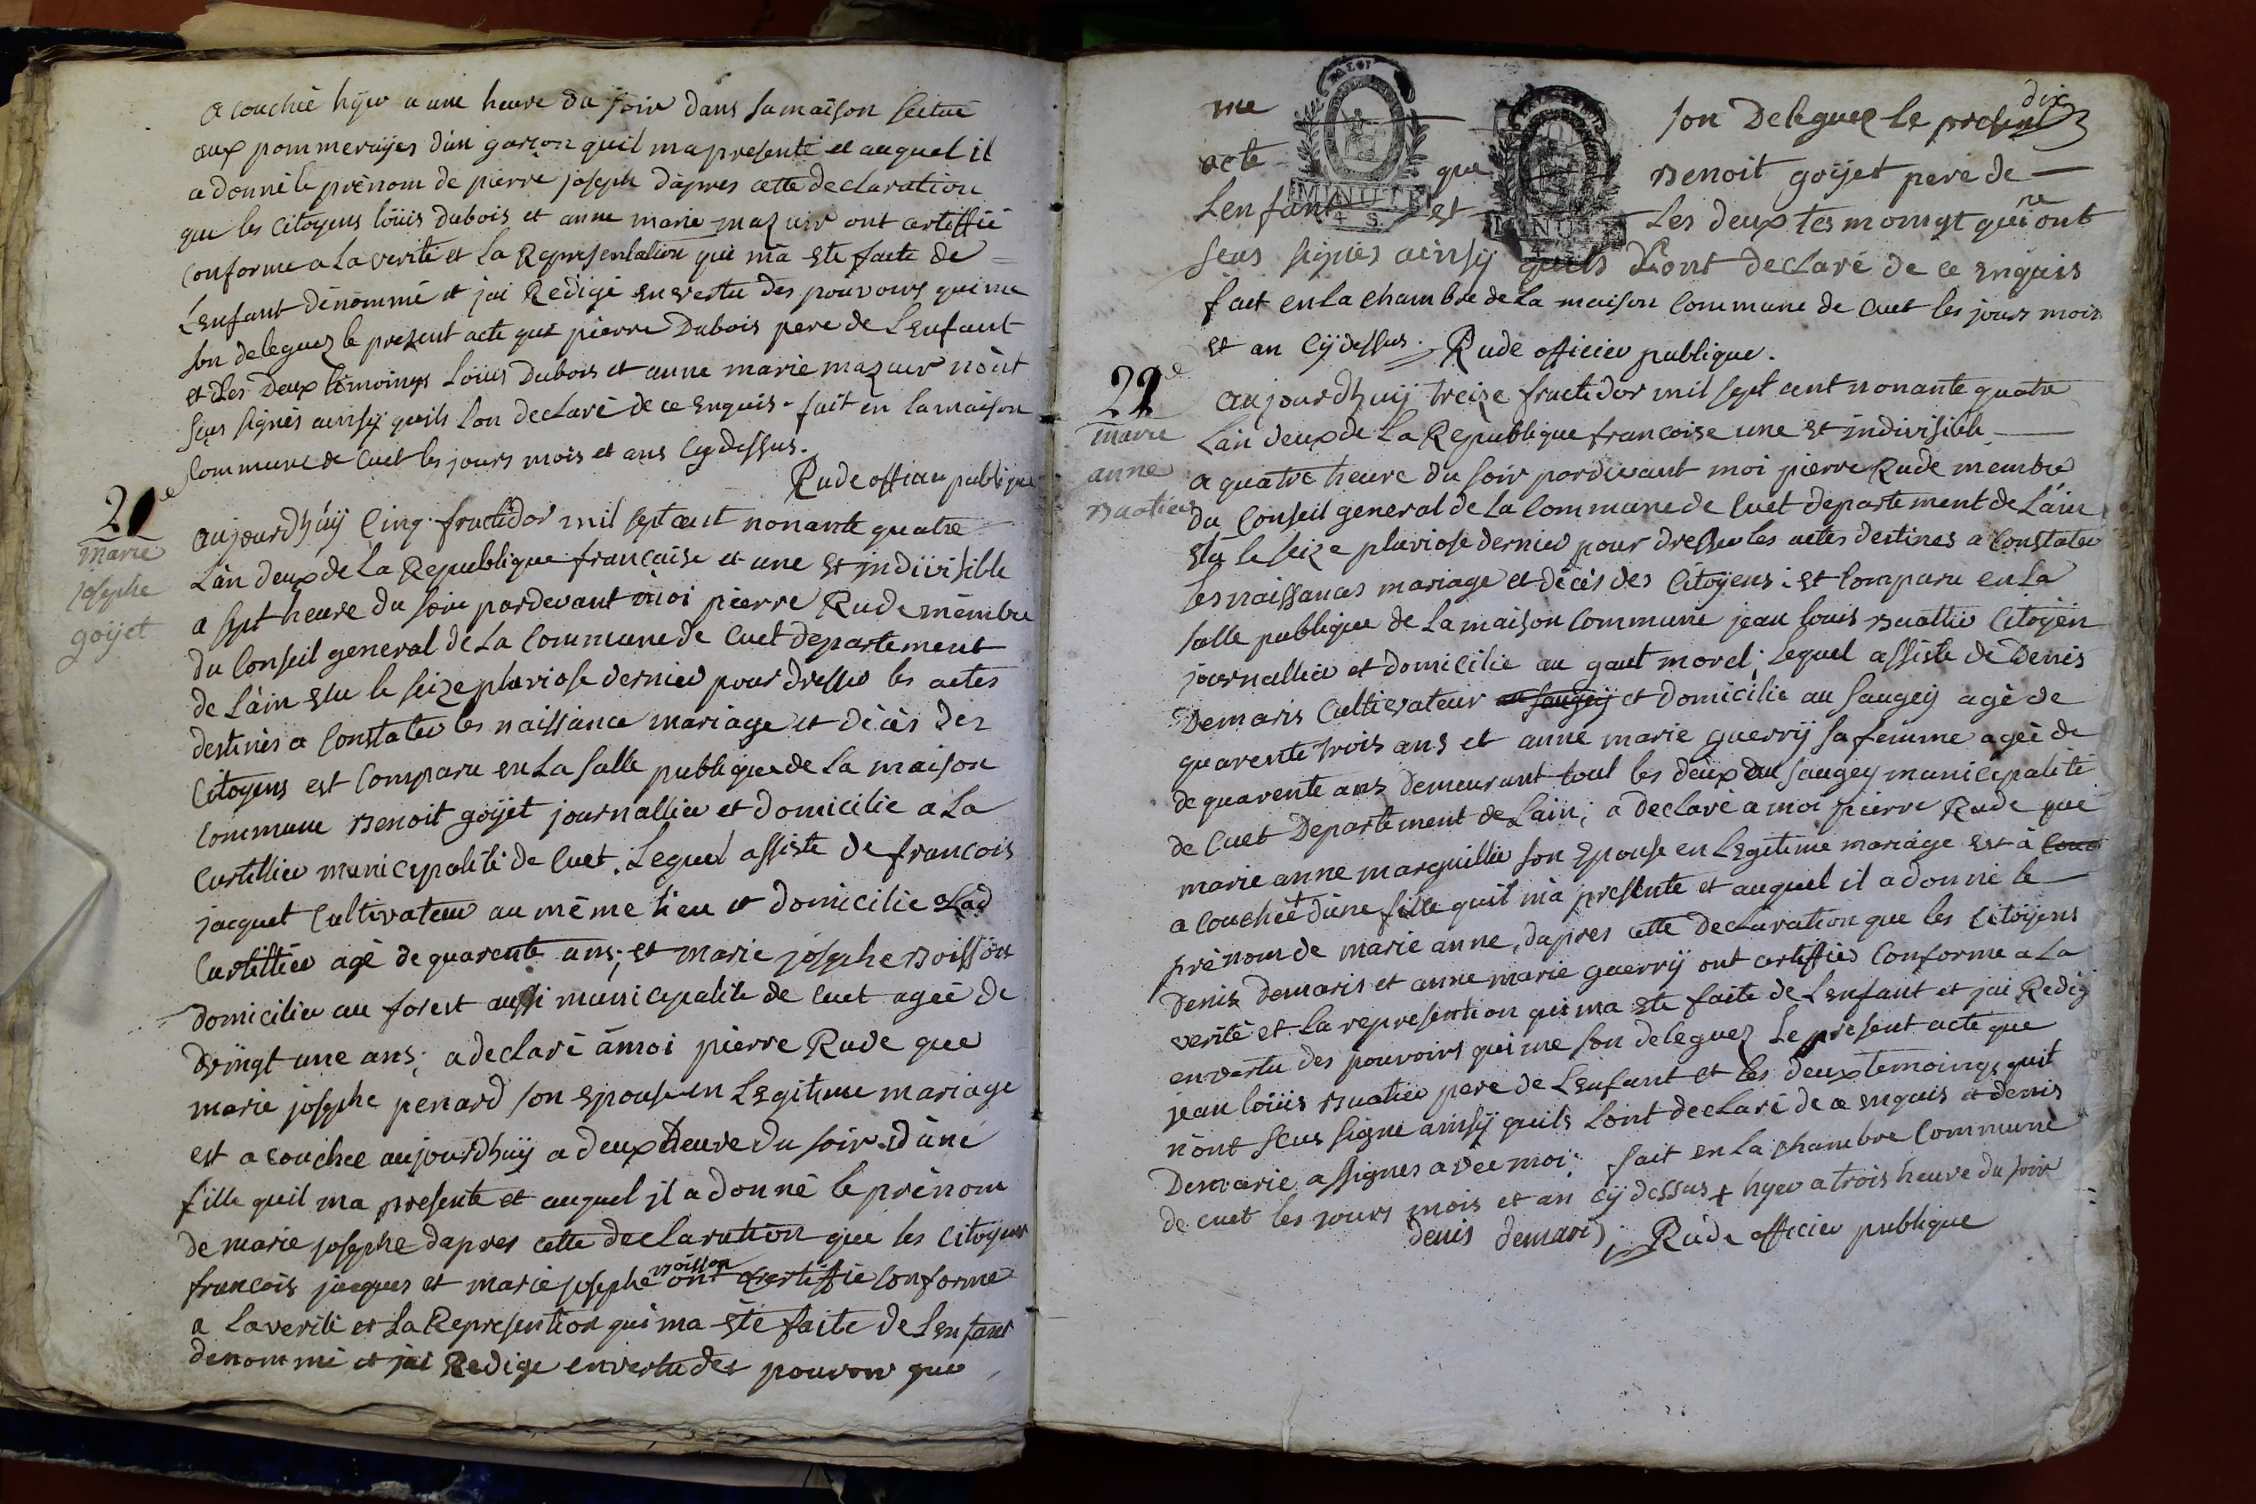 a couchée hÿer a une heure du soir dans sa maison scitué
aux pommerayes d'un garçon quil ma presenté et auquel il
a donné le prénom de pierre joseph dàpres cette declaration
que les citoyens loüis dubois et anne marie mazuir ont certiffié
conforme a la verité et la Representation qui mà ete faite de
Lenfant dénommé et jai Redigé en vertu des pouvoirs qui me
son deleguez le present acte que pierre Dubois pere de Lenfant
et Les Deux témoings Loüis Dubois et anne marie mazuir nont
sçus signés ainsÿ quils lon declaré de ce enquis. fait en la maison
Commune de Cuet les jours mois et ans Cy dessus.
Rude officier publique
21e
marie
josephe
goÿet
aujourdhuÿ Cinq fructidor mil sept cent nonante quatre
Làn deux de La Republique française et une et indivisible
a sept heure du soir pardevant moi pierre Rude membre
du Conseil general de La Commune de Cuet departement
de Làin Elu le seize pluviose dernier pour dresser les actes
destinés a Constater les naissance mariage et décès des
Citoyens est Comparu en La salle publique de La maison
Commune Benoit goÿet journallier et domicilié a La
Curtillier municipalité de Cuet. Lequel assisté de francois
jacquet Cultivateur au même lieu et domicilié Lad
Curtillier agé de quarente ans; et marie josephe Boisson
domicilié au forest aussi municipalité de Cuet ageé de
vingt une ans; a declaré àmoi pierre Rude que
marie josephe penard son Epouse en Legitime mariage
est a couchee aujourdhuÿ a deux heure du soir d'ùne
fille quil ma presenté et auquel il a donné le prénom
de marie josephe dapres cette declaration que les Citoyens
francois jacques et marie josephe Boisson ont certiffié Conforme
a La verité et La Represention qui ma Eté faite de Lenfant
denommé et jai Redigé en vertu des pouvoir que
dix
me son Deleguez le present
acte que Benoit goÿet pere de
Lenfant et Les deux tesmoings qui n'ont
sçus signés ainsÿ quils Lont declaré de ce Enquis
fait en La Chambre de La maison Commune de Cuet les jours mois
et an Cÿ dessus. Rude officier publique.
22e
marie
anne
Buatier
aujourdhuÿ treize fructidor mil sept cent nonante quatre
Làn deux de La Republique francoise une et indivisible
a quatre heure du soir pardevant moi pierre Rude membre
du Conseil general de La Commune de Cuet departement de Làin
Elu le seize pluviose dernier pour dresser les actes destines a Constater
Les naissances mariage et décès des Citoÿens: est Comparu en La
salle publique de La maison Commune jean louis Buattier Citoÿen
journallier et domicilié au gaut morel; Lequel assisté de Denis
Demaris Cultivateur au saugeÿ et domicilié au saugeÿ agé de
quarente trois ans et anne marie guerrÿ sa femme ageé de
de quarente ans Demeurant tout les deux du saugeÿ municipalité
de Cuet Departement de Lain; a declaré a moi pierre Rude que
marie anne marguillier son Epouse en Legitime mariage est à Couc
a couchéé d'ùne fille quil mà presenté et auquel il a donné le
prénom de marie anne, dapres cette declaration que les Citoÿens
Denis Demaris et anne marie guerrÿ ont certiffiés Conforme a La
verité et La represention qui ma Eté faite de Lenfant et jai Redig
en vertu des pouvoirs qui me son deleguez Le present acte que
jean loüis Buatier pere de Lenfant et les deux temoings quil
n'ont sçus signé ainsÿ quils Lont declaré de ce enquis et denis
Demarie a signes avec moi: fait en La Chambre Commune
de Cuet les jours mois et an Cÿ dessus + hÿer a trois heure du soir
denis demaris Rude officier publique
MINUTE
4 S.
MINUTE